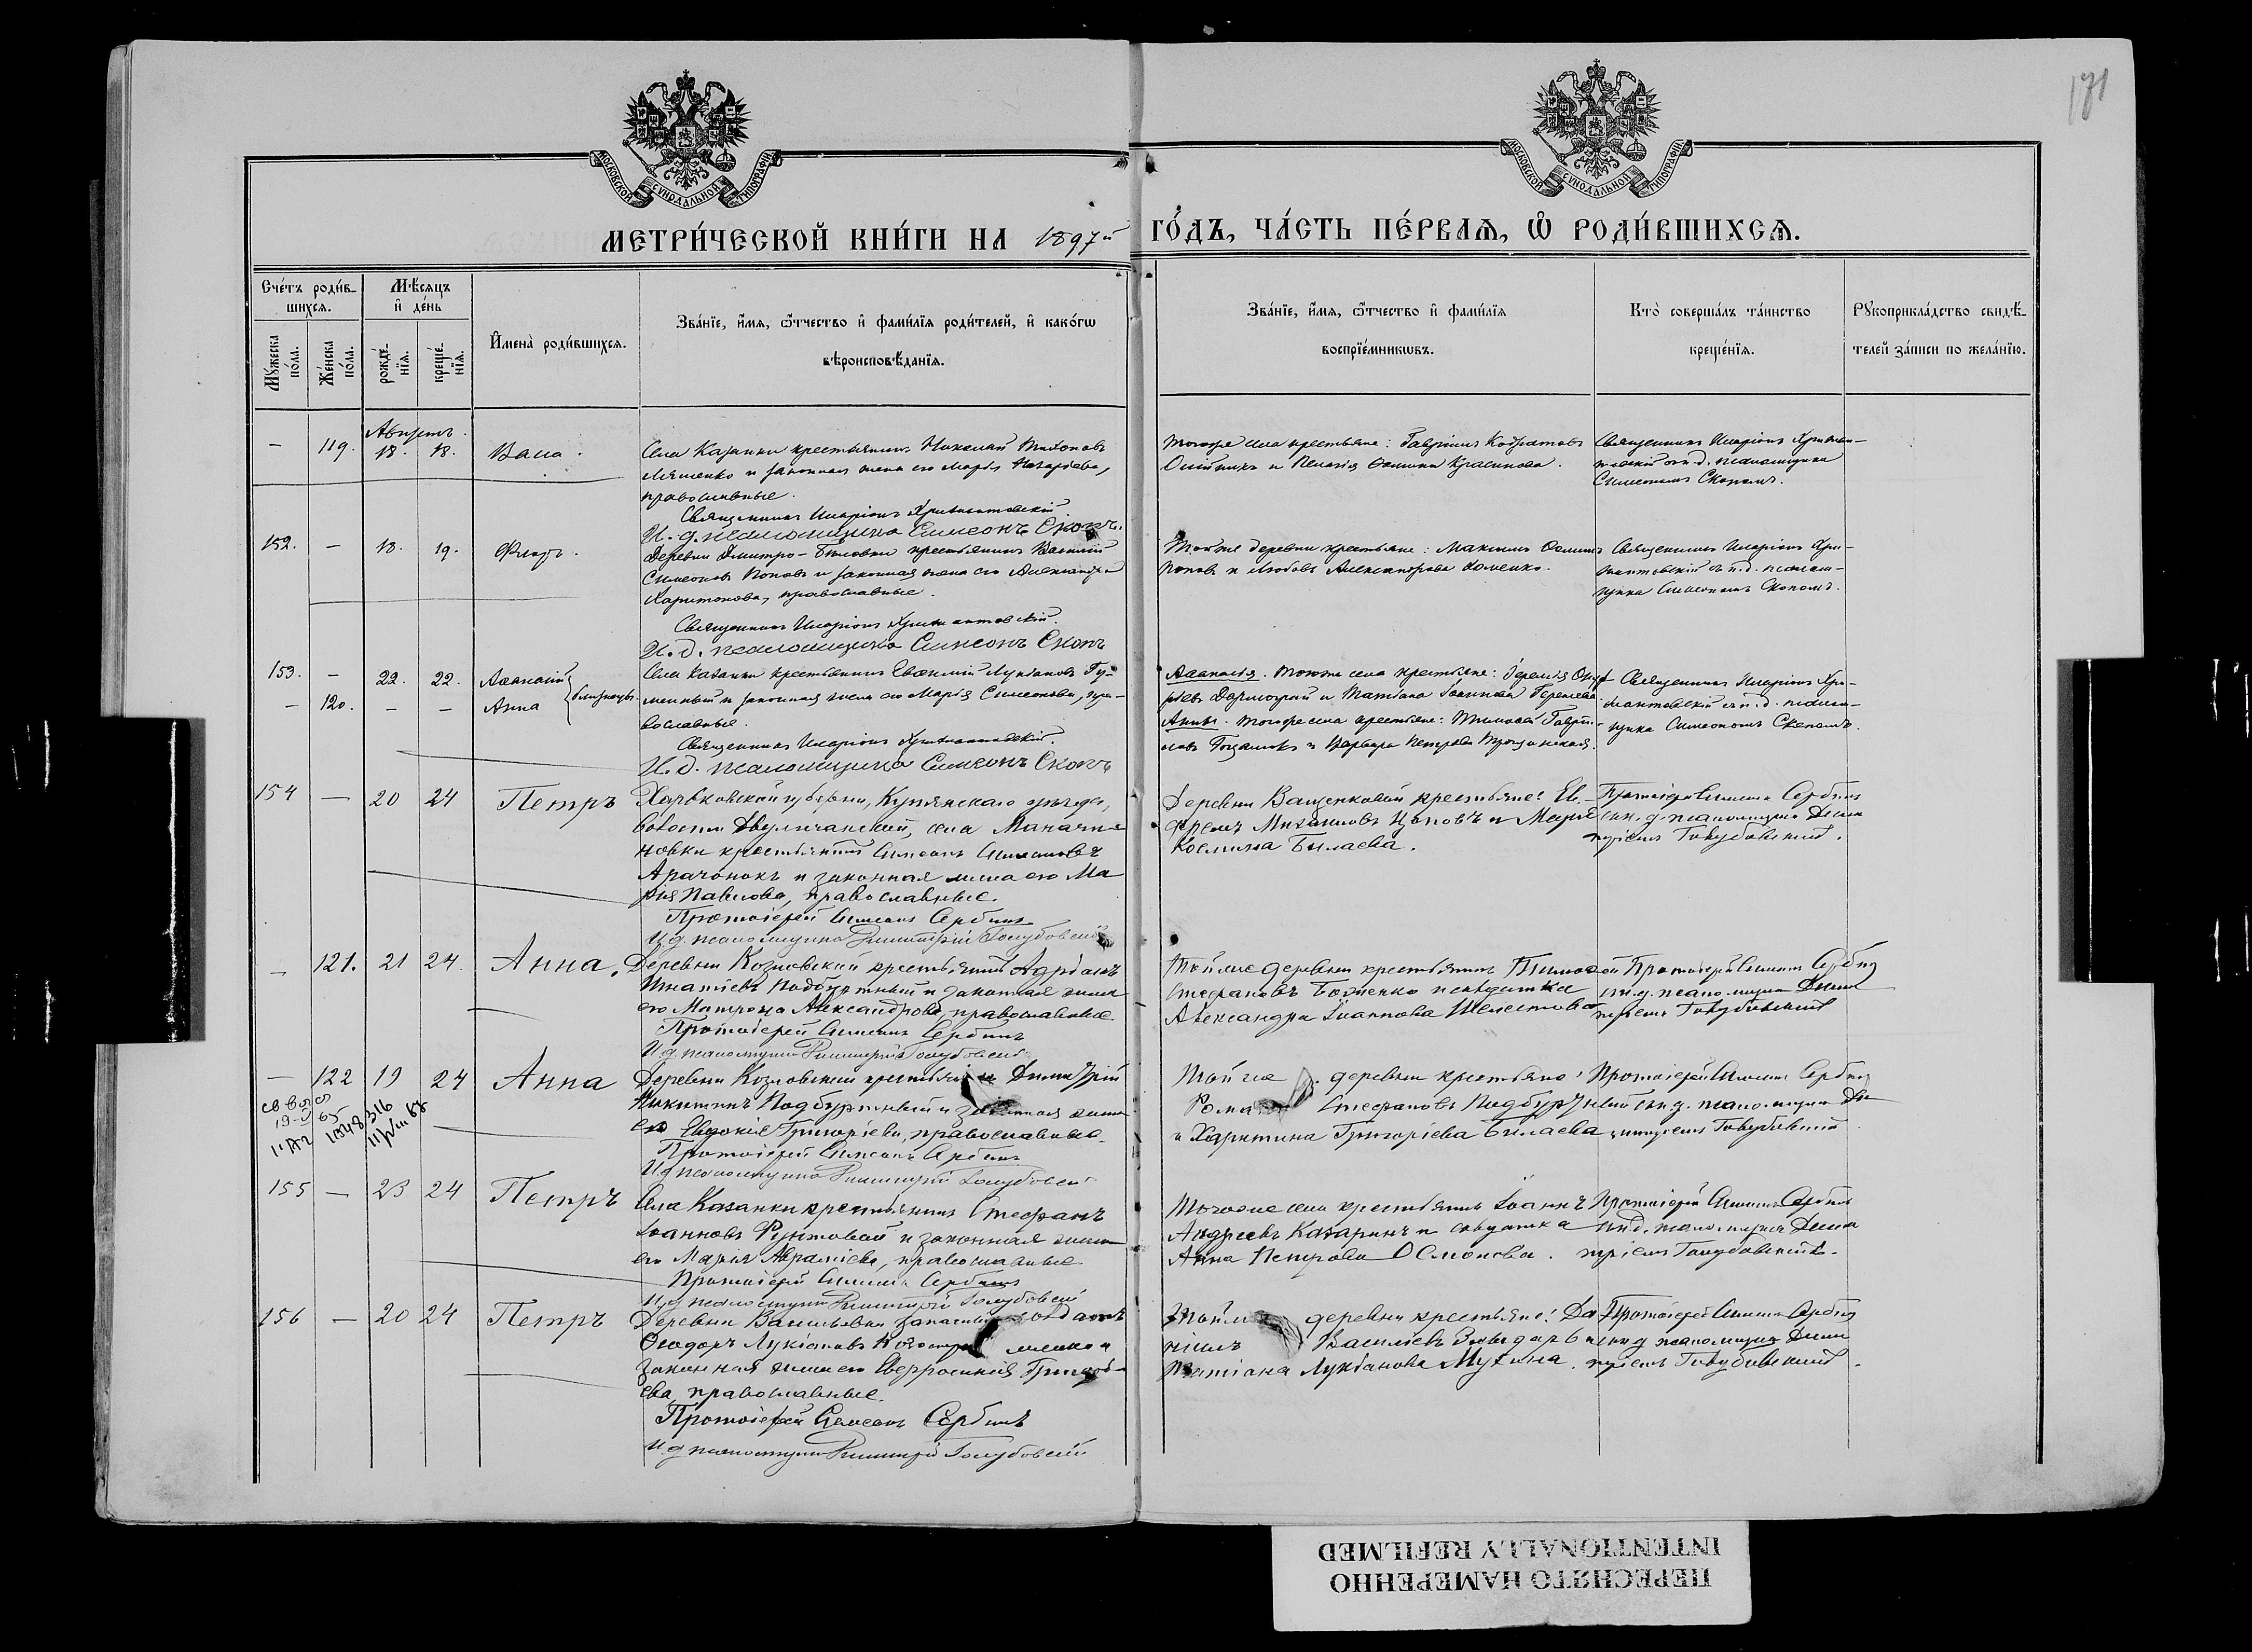 171
МОСКОВСКОЙ СУНОДАЛЬНОЙ ТИПОГРАФІИ
МОСКОВСКОЙ СУНОДАЛЬНОЙ ТИПОГРАФІИ
МЕТРИ́ЧЕСКОЙ КНИ́ГИ НА 1897й ГО́ДЪ, ЧА́СТЬ ПЕ́РВАѦ, Ѡ҆ РОДИ́ВШИХСѦ.
Сче́тъ роди́в-
шихсѧ.
Мꙋ́жеска по́ла.
Же́нска по́ла.
Мѣ́сѧцъ
и҆ де́нь
рожде́-
нїѧ.
креще́-
нїѧ.
И҆мена̀ роди́вшихсѧ.
Зва́нїе, и҆́мѧ, ѻ҆́тчество и҆ фами́лїѧ роди́телей, и҆ како́гѡ
вѣроисповѣ́данїѧ.
Зва́нїе, и҆́мѧ, ѻ҆́тчество и҆ фами́лїѧ
воспрїе́мникѡвъ.
Кто̀ соверша́лъ та́инство
креще́нїѧ.
Рꙋкоприкла́дство свидѣ́-
телей за́писи по жела́нїю.
Августъ.
— 119. 18. 18. Васса.
Села Казанки крестьянинъ Николай
и законная жена его Марѳа Назарьева,
православные.
Священникъ Иларіонъ
И. д. псаломщика Симеонъ Скопъ.
Тогоже села крестьяне: Гавріилъ Кодратовъ
и Пелагія
Священникъ Иларіонъ
съ и. д. псаломщика
Симеономъ Скопомъ.
152. — 18. 19. Флоръ.
Деревни Дмитро-Бѣловки крестьянинъ Василій
Симеоновъ Поповъ и законная жена его Александра
Харитонова, православные.
Священникъ Иларіонъ
И. д. псаломщика Симеонъ Скопъ
Тойже деревни крестьяне: Максимъ
Поповъ и Любовь Александрова Хоменко.
Священникъ Иларіонъ
съ и. д. псалом-
щика Симеономъ Скопомъ.
153. — 22. 22. Аѳанасій
— 120. — — Анна
близнецы.
Села Казанки крестьянинъ Евѳимій Лукіановъ Гу-
менный и законная жена его Марѳа Симеонова, пра-
вославные.
Священникъ Иларіонъ
И. д. псаломщика Симеонъ Скопъ
Аѳанасія. Тогоже села крестьяне: Іеремія
и Татіана
Анны. Тогоже села крестьяне: Тимоѳей Гаврі-
иловъ и Варвара Петрова
Священникъ Иларіонъ
съ и. д. псалом-
щика Симеономъ Скопомъ.
154 — 20 24 Петръ
Харьковской губерніи, Купянскаго уѣзда,
волости Двуличанской, села Маначи-
новки крестьянинъ Симеонъ Симеоновъ
и законная жена его Ма
рія Павлова, православные.
Протоіерей Симеонъ Сербинъ
И. д. псаломщика Димитрій Голубовскій
Деревни Ващенковой крестьяне: Ев-
фремъ Михаиловъ Цаповъ и Марія
Космина Билаева.
Протоіерей Симеонъ Сербинъ
съ и. д. псаломщика Дими
тріемъ Голубовскимъ.
— 121. 21 24. Анна.
Деревни Козловской крестьянинъ Адріанъ
Игнатіевъ Подбуртный и законная жена
его Матрона Александрова, православные.
Протоіерей Симеонъ Сербинъ
И. д. псаломщика Димитрій Голубовскій
Тойже деревни крестьянинъ Тимоѳей
Стефановъ Боженко и
Александра Іоаннова Шелестова
Протоіерей Симеонъ Сербинъ
съ и. д. псаломщика Дими
тріемъ Голубовскимъ
— 122 19 24 Анна
Деревни Козловской крестьянинъ Димитрій
Никитинъ Подбуртный и законная жена
его Евдокія Григоріева, православные.
Протоіерей Симеонъ Сербинъ
И. д. псаломщика Димитрій Голубовскій
Тойже деревни крестьяне:
Романъ Стефановъ Подбуртный
и Харитина Григоріева Билаева
Протоіерей Симеонъ Сербинъ
съ и. д. псаломщика Ди
митріемъ Голубовскимъ
155 — 23 24 Петръ
Села Казанки крестьянинъ Стефанъ
Іоанновъ и законная жена
его Марія Авраміева, православные
Протоіерей Симеонъ Сербинъ
И. д. псаломщика Димитрій Голубовскій
Тогоже села крестьянинъ Іоаннъ
Андреевъ Казаринъ и
Анна Петрова Осмонова.
Протоіерей Симеонъ Сербинъ
съ и. д. псаломщика Дими
тріемъ Голубовскимъ.
156 — 20 24 Петръ
Деревни Васильевки запасный солдатъ
Ѳеодоръ Лукіановъ
законная жена его Евфросинія Григорі-
ева, православные.
Протоіерей Симеонъ Сербинъ
И. д. псаломщика Димитрій Голубовскій
Тойже деревни крестьяне: Да
ніилъ Василіевъ и
Татіана Лукіанова Мухина.
Протоіерей Симеонъ Сербинъ
съ и. д. псаломщика Дими
тріемъ Голубовскимъ.
ПЕРЕСНЯТО НАМЕРЕННО
INTENTIONALLY REFILMED